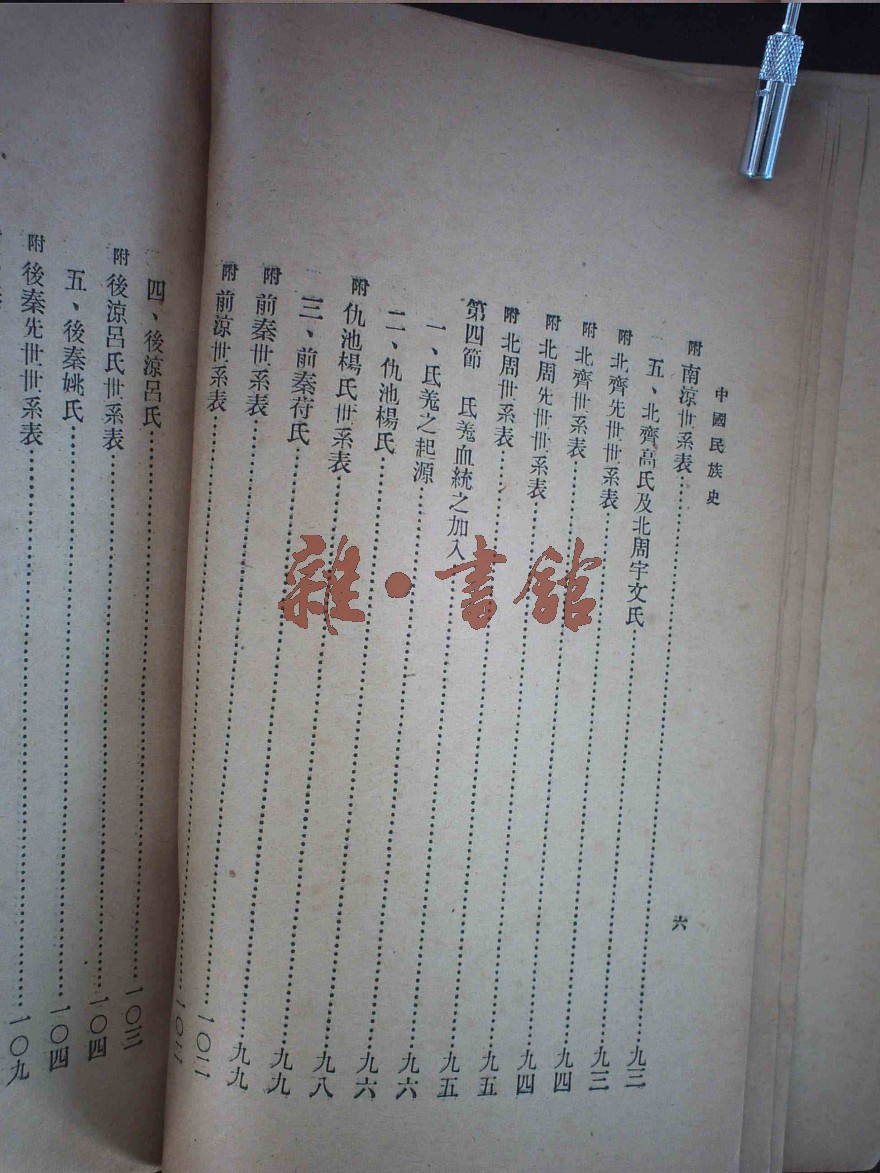 中國民族史 六
附 南涼世系表……九三
五、北齊高氏及北周宇文氏……九三
附 北齊先世世系表……九四
附 北齊世系表……九四
附 北周先世世系表……九五
附 北周世系表……九五
第四節 氐羌血統之加入……九六
一、氐羌之起源……九六
二、仇池楊氏……九八
附 仇池楊氏世系表……九九
三、前秦苻氏……九九
附 前秦世系表……一〇二
附 前涼世系表……一〇二
四、後涼呂氏……一〇三
附 後涼呂氏世系表……一〇四
五、後秦姚氏……一〇四
附 後秦先世世系表……一〇九
雜·書館